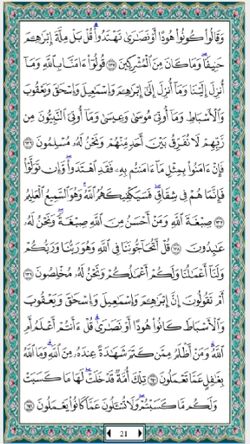 وَقَالُوا۟ كُونُوا۟ هُودًا أَوْ نَصَـٰرَىٰ تَهْتَدُوا۟ ۗ قُلْ بَلْ مِلَّةَ إِبْرَٰهِـۧمَ
حَنِيفًا ۖ وَمَا كَانَ مِنَ ٱلْمُشْرِكِينَ ١٣٥ قُولُوٓا۟ ءَامَنَّا بِٱللَّهِ وَمَآ
أُنزِلَ إِلَيْنَا وَمَآ أُنزِلَ إِلَىٰٓ إِبْرَٰهِـۧمَ وَإِسْمَـٰعِيلَ وَإِسْحَـٰقَ وَيَعْقُوبَ
وَٱلْأَسْبَاطِ وَمَآ أُوتِىَ مُوسَىٰ وَعِيسَىٰ وَمَآ أُوتِىَ ٱلنَّبِيُّونَ مِن
رَّبِّهِمْ لَا نُفَرِّقُ بَيْنَ أَحَدٍ مِّنْهُمْ وَنَحْنُ لَهُۥ مُسْلِمُونَ ١٣٦
فَإِنْ ءَامَنُوا۟ بِمِثْلِ مَآ ءَامَنتُم بِهِۦ فَقَدِ ٱهْتَدَوا۟ ۖ وَّإِن تَوَلَّوْا۟
فَإِنَّمَا هُمْ فِى شِقَاقٍ ۖ فَسَيَكْفِيكَهُمُ ٱللَّهُ ۚ وَهُوَ ٱلسَّمِيعُ ٱلْعَلِيمُ
١٣٧ صِبْغَةَ ٱللَّهِ ۖ وَمَنْ أَحْسَنُ مِنَ ٱللَّهِ صِبْغَةً ۖ وَنَحْنُ لَهُۥ
عَـٰبِدُونَ ١٣٨ قُلْ أَتُحَآجُّونَنَا فِى ٱللَّهِ وَهُوَ رَبُّنَا وَرَبُّكُمْ
وَلَنَآ أَعْمَـٰلُنَا وَلَكُمْ أَعْمَـٰلُكُمْ وَنَحْنُ لَهُۥ مُخْلِصُونَ ١٣٩
أَمْ تَقُولُونَ إِنَّ إِبْرَٰهِـۧمَ وَإِسْمَـٰعِيلَ وَإِسْحَـٰقَ وَيَعْقُوبَ
وَٱلْأَسْبَاطَ كَانُوا۟ هُودًا أَوْ نَصَـٰرَىٰ ۗ قُلْ ءَأَنتُمْ أَعْلَمُ أَمِ
ٱللَّهُ ۗ وَمَنْ أَظْلَمُ مِمَّن كَتَمَ شَهَـٰدَةً عِندَهُۥ مِنَ ٱللَّهِ ۗ وَمَا ٱللَّهُ
بِغَـٰفِلٍ عَمَّا تَعْمَلُونَ ١٤٠ تِلْكَ أُمَّةٌ قَدْ خَلَتْ ۖ لَهَا مَا كَسَبَتْ
وَلَكُم مَّا كَسَبْتُمْ ۖ وَلَا تُسْـَٔلُونَ عَمَّا كَانُوا۟ يَعْمَلُونَ ١٤١
21